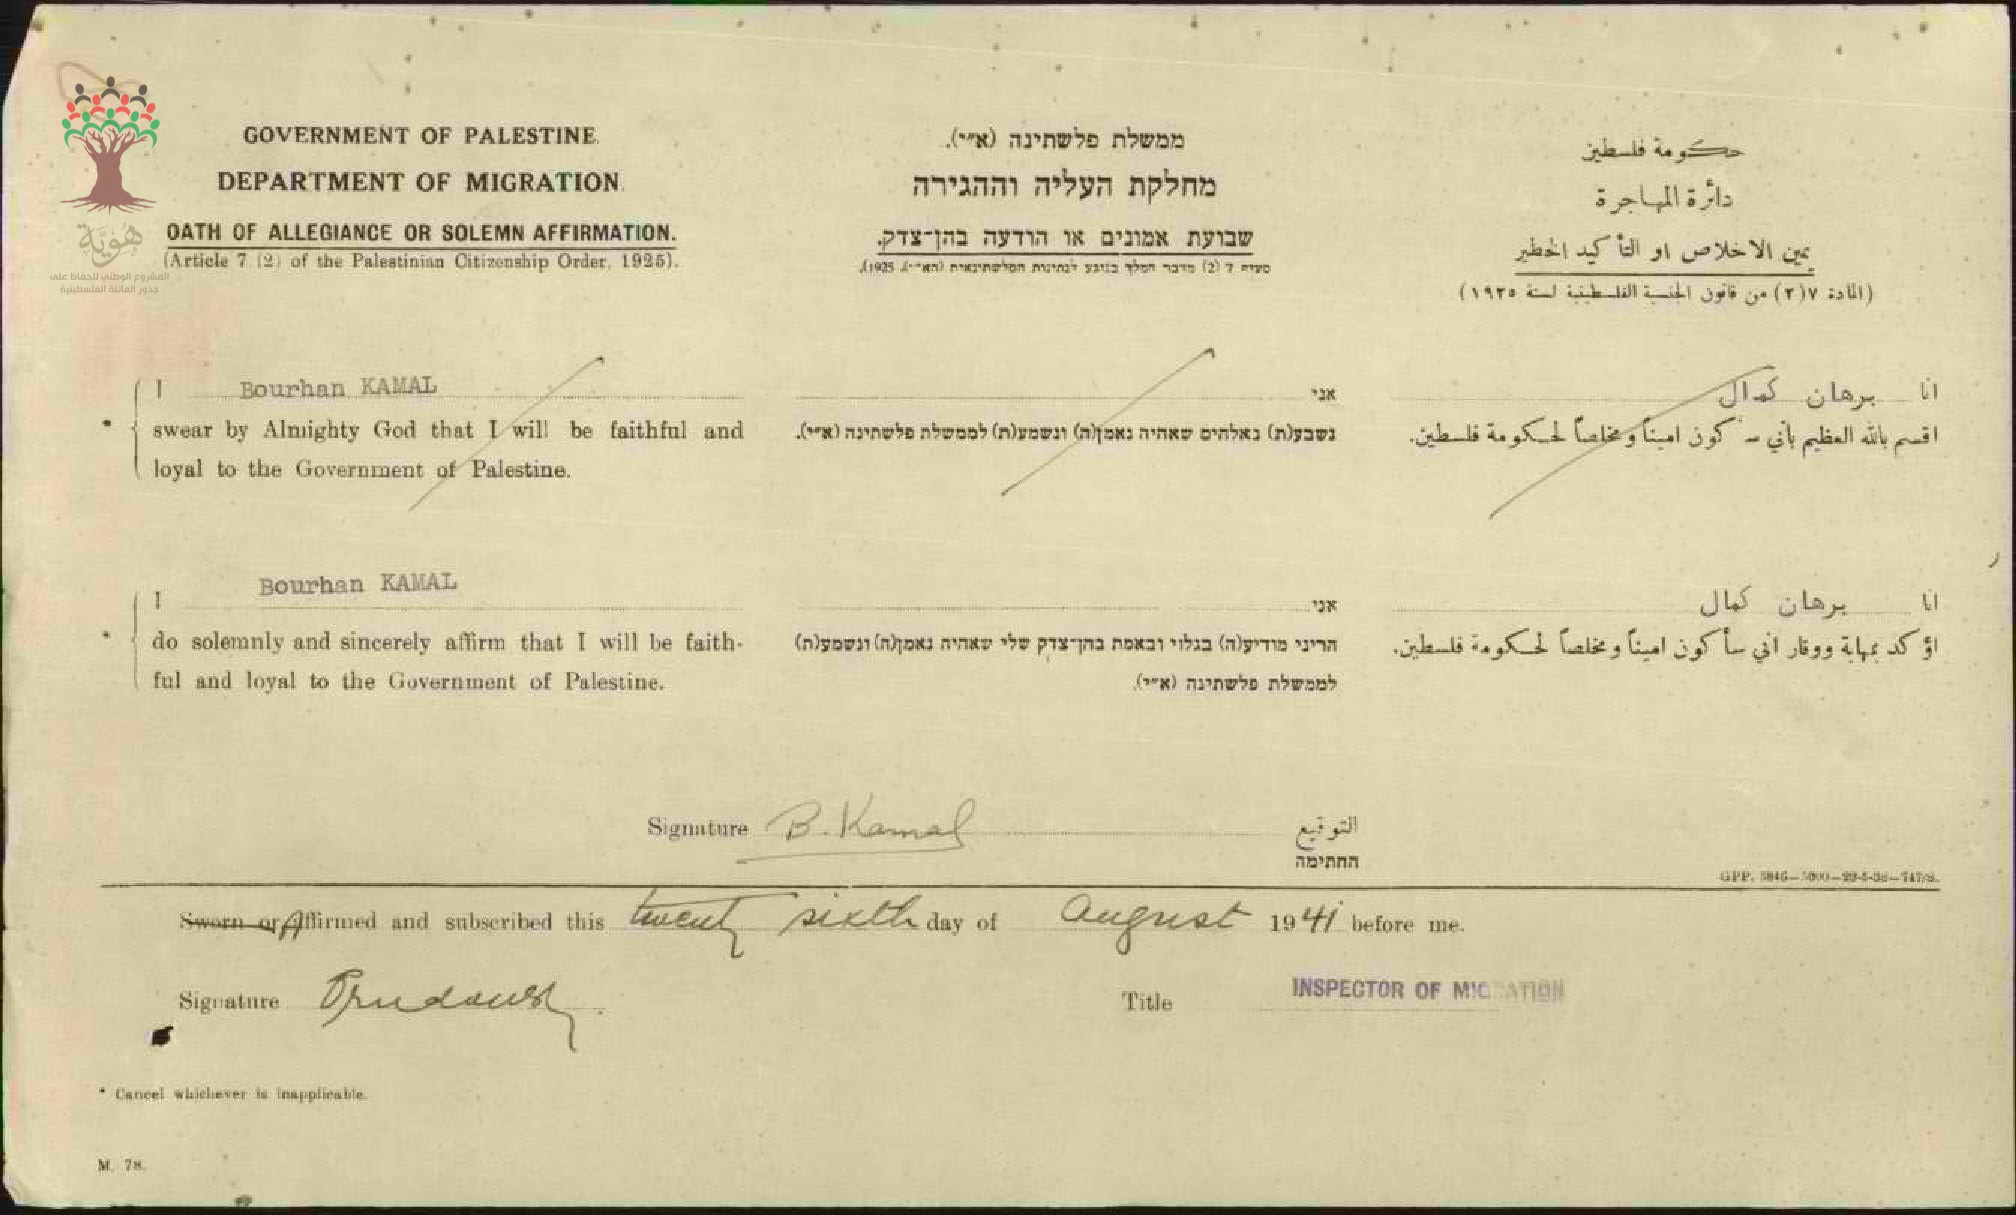 هُوِيَّة
المشروع الوطني للحفاظ على
جذور العائلة الفلسطينية
GOVERNMENT OF PALESTINE.
DEPARTMENT OF MIGRATION.
OATH OF ALLEGIANCE OR SOLEMN AFFIRMATION.
(Article 7 (2) of the Palestinian Citizenship Order, 1925).
ממשלת פלשתינה (א״י).
מחלקת העליה וההגירה
שבועת אמונים או הודעה בהן־צדק.
סעיף 7 (2) מדבר המלך בנוגע לנתינות הפלשתינאית (הא״י), 1925).
حكومة فلسطين
دائرة المهاجرة
يمين الاخلاص او التأكيد الخطير
(المادة ٧(٢) من قانون الجنسية الفلسطينية لسنة ١٩٢٥)
* I Bourhan KAMAL
swear by Almighty God that I will be faithful and
loyal to the Government of Palestine.
אני
נשבע(ת) באלהים שאהיה נאמן(ה) ונשמע(ת) לממשלת פלשתינה (א״י).
انا برهان كمال
اقسم بالله العظيم بأني سـكون اميناً ومخلصاً لحكومة فلسطين.
* I Bourhan KAMAL
do solemnly and sincerely affirm that I will be faith-
ful and loyal to the Government of Palestine.
אני
הריני מודיע(ה) בגלוי ובאמת בהן־צדק שלי שאהיה נאמן(ה) ונשמע(ת)
לממשלת פלשתינה (א״י).
انا برهان كمال
اؤكد بمهابة ووقار اني سأكون اميناً ومخلصاً لحكومة فلسطين.
Signature B. Kamal التوقيع
החתימה
GPP. 5846—5000—23-5-38—747/S.
Sworn or Affirmed and subscribed this twenty sixth day of August 1941 before me.
Signature
Title INSPECTOR OF MIGRATION
* Cancel whichever is inapplicable.
M. 78.